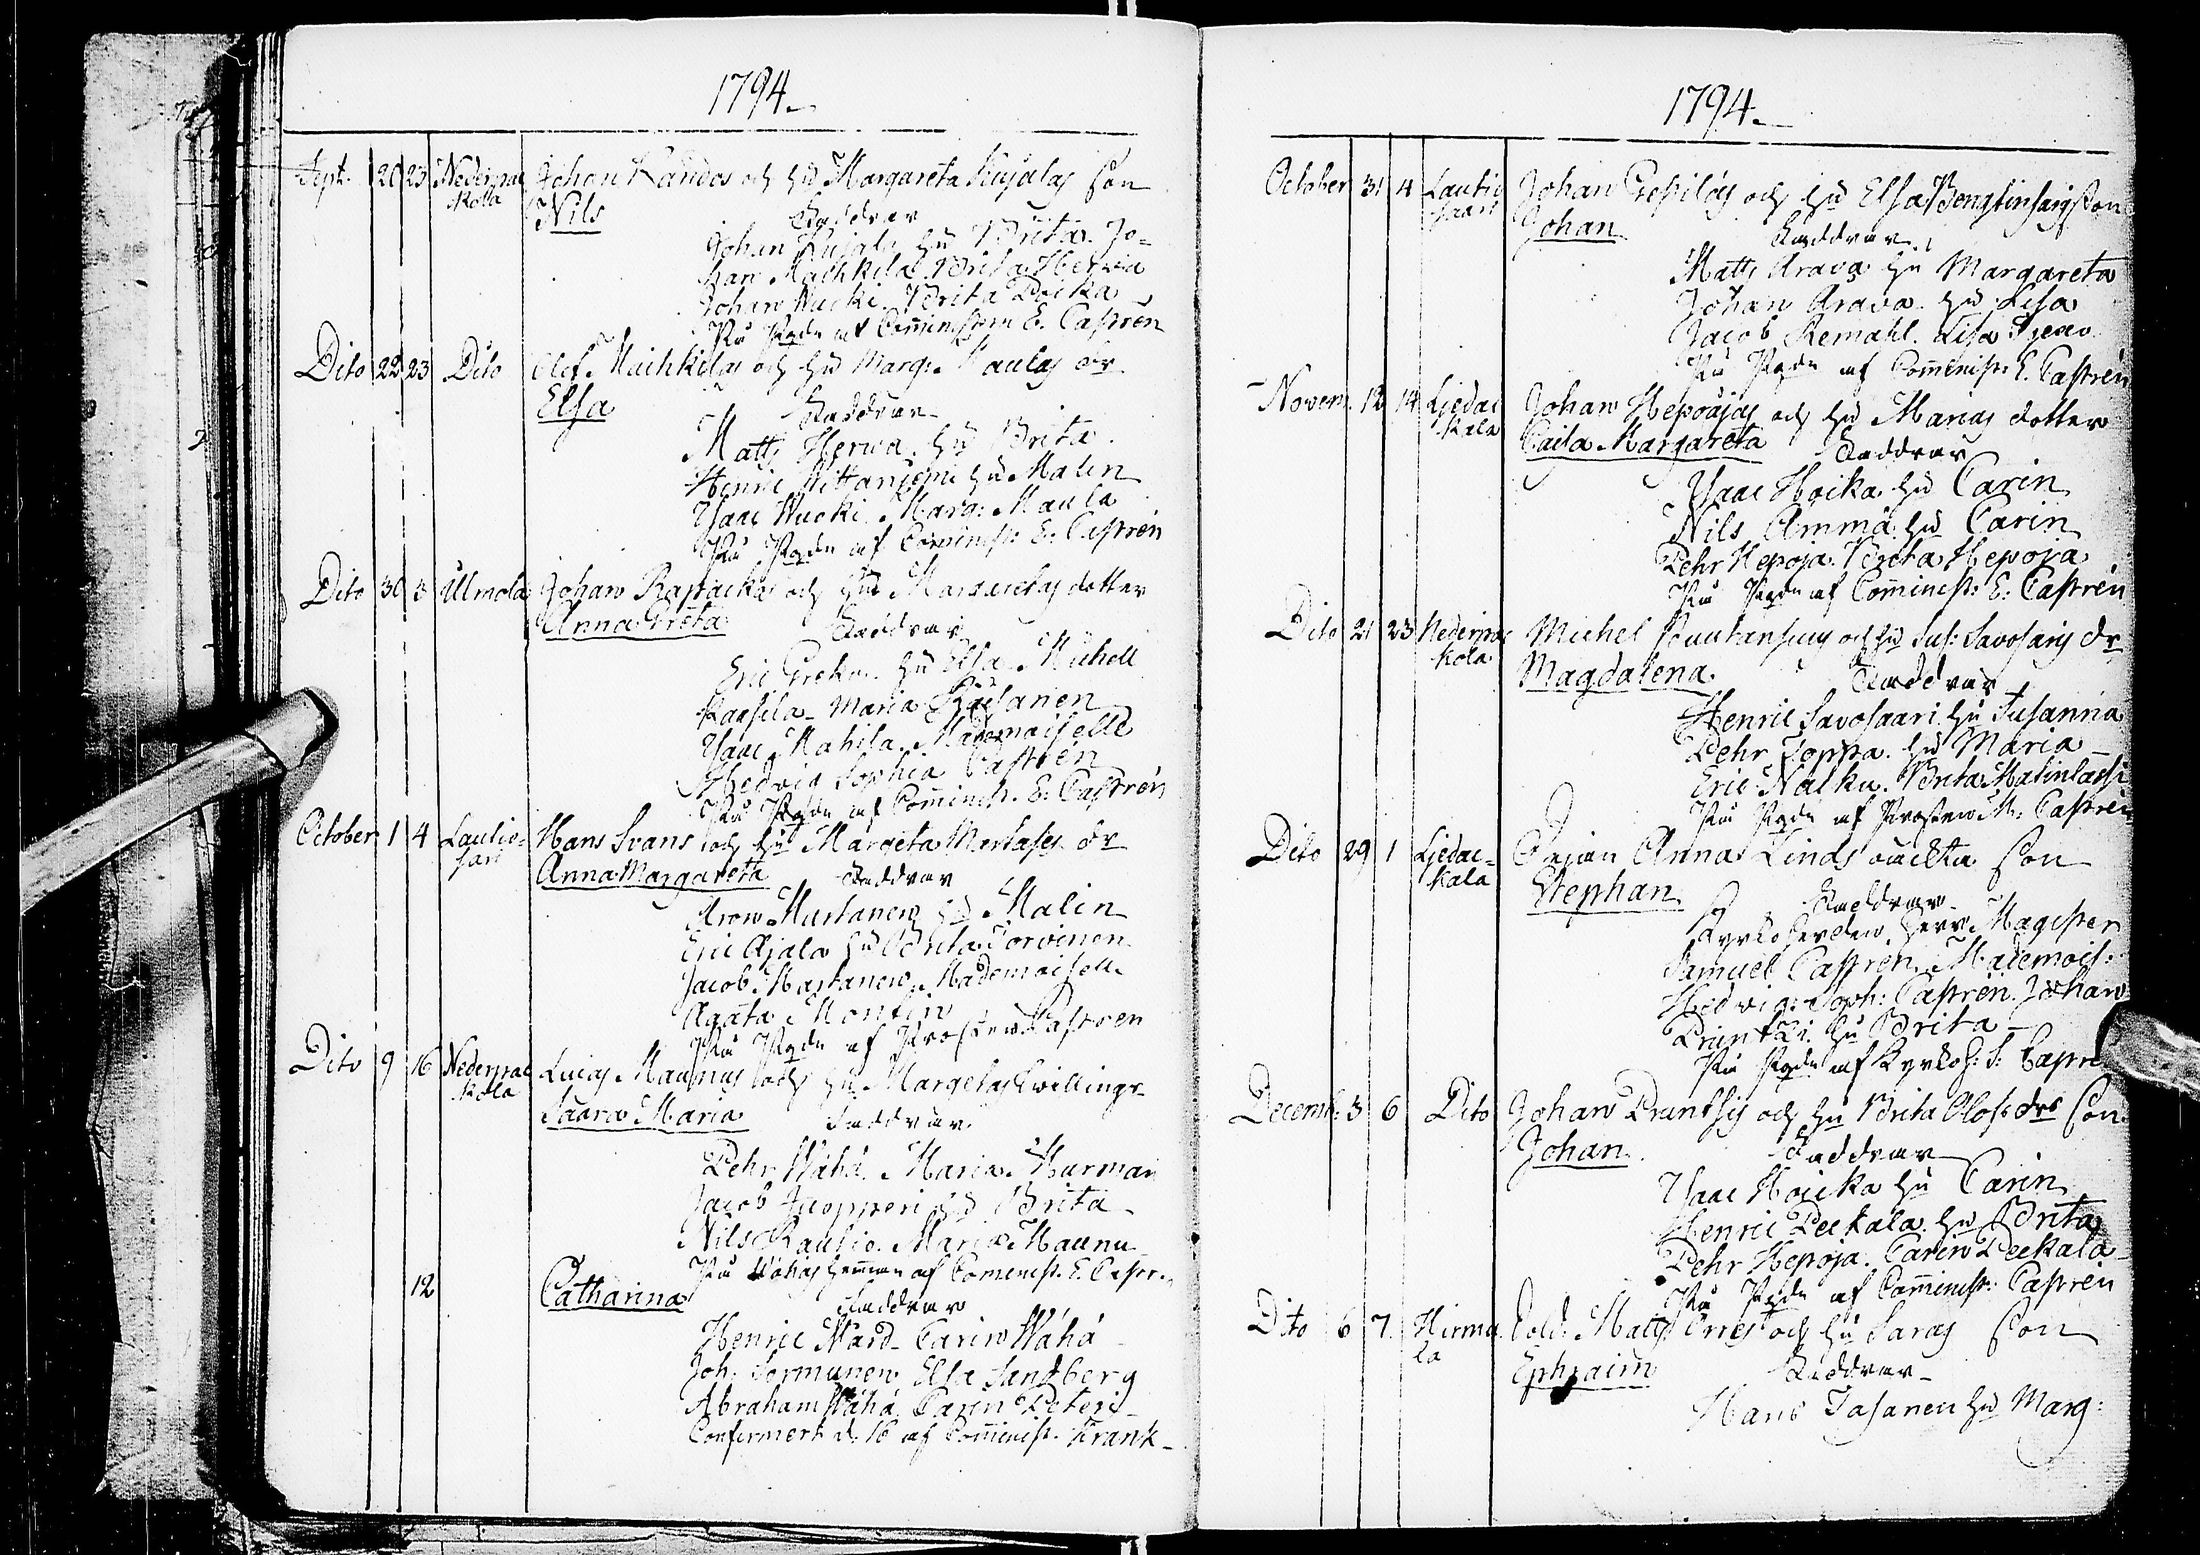 1794.
Sept. 20 23 Nederpac Johan Kaudos och hu Margareta Kujalas son
kola Nils Faddrar
Johan Kujala hu Brita. Jo=
han Machkila. Brita Herva
Johan Nucki. Brita Poika
På Pgdn af Cominist E. Castrén
Dito 22 23 Dito Olof Machkilas och hu Marg: Maulas dr
Elsa Faddrar
Matts Herva. hu Brita.
Henric Nittaniemi hu Malin
Isaac Nucki. Marg: Maula
På Pgdn af Cominist: E: Castrén
Dito 30 3 Ulmola Johan Rapackas och hu Margaretas dotter
Anna Greta Faddrar
Eric Greku. hu Elsa. Michell
Kaasila. Maria
Isaac Mahila. Mademoiselle
Hedvig Sophia Castrén
På Pgdn af Cominist. E: Castrén
October 1 4 Lautio= Hans Svans och hu Margeta Mustases dr
sari Anna Margareta Faddrar
Aron Mustanen hu Malin
Eric Ajala hu Brita Torvinen
Jacob Mustanen. Mademoiselle
Agata Montin
På Pgdn af Prosten Castren
Dito 9 16 Nederpac Lucas Maunus och hu Margetas Twillingr=
kola Saara Maria Faddrar
Pehr Wähä. Maria Murman
Jacob Juopperi hu Brita
Nils Rautio. Maria Maunu
På Wähäs heman af Cominist. E. Castr.
12 Catharina Faddrar
Henric Nard. Carin Wähä
Joh. Sormunen Elsa Sandberg
Abraham Wähä. Carin Peteri
Confirmert d. 16 af Cominist. Frank=
1794.
October 31 4 Lautio Johan Prepilas och hu Elsa Bengtinsais son
saari Johan Faddrar
Matts Arava hu Margareta
Johan Arava. hu Lisa
Jacob Remahl. Lisa
På Pgdn af Cominist: E. Castrén
Novem. 12 14 Ljedac Johan Hepoajas och hu Marias dotter
kala Caisa Margareta Faddrar
Isaac Hoicka hu Carin
Nils Ämmä. hu Carin
Pehr Hepoja. Brita Hepoja
På Pgdn af Cominist: E: Castrén
Dito 21 23 Nederpac Michel och hu Sus: Savosaris dr
kola Magdalena. Faddrar
Henric Savosaari. hu Susanna
Pehr Toppa. hu Maria
Eric Nalku. Brita Matinlassi
På Pgdn af Prosten M: Castrén
Dito 29 1 Ljedac= Pigan Anna Linds oäckta son
kala Stephan Faddrar
Kyrkoherden, herr Magister
Samuel Castren. Mademois:
Hedvig: Soph: Castrén. Johan
Pruntzi. hu Brita
På Pgdn af Kyrkoh: S: Castre
Decemb: 3 6 Dito Johan Pruntsis och hu Brita Olofsdrs son.
Johan. Faddrar
Isaac Hoicka hu Carin
Henric Peckala. hu Brita
Pehr Hepoja. Carin Peckala
På Pgdn af Cominist: Castrén
Dito 6 7. Hirma Sold. Matts Orres och hu Saras son
la Ephraim Faddrar
Hans Jasanen hu Marg: